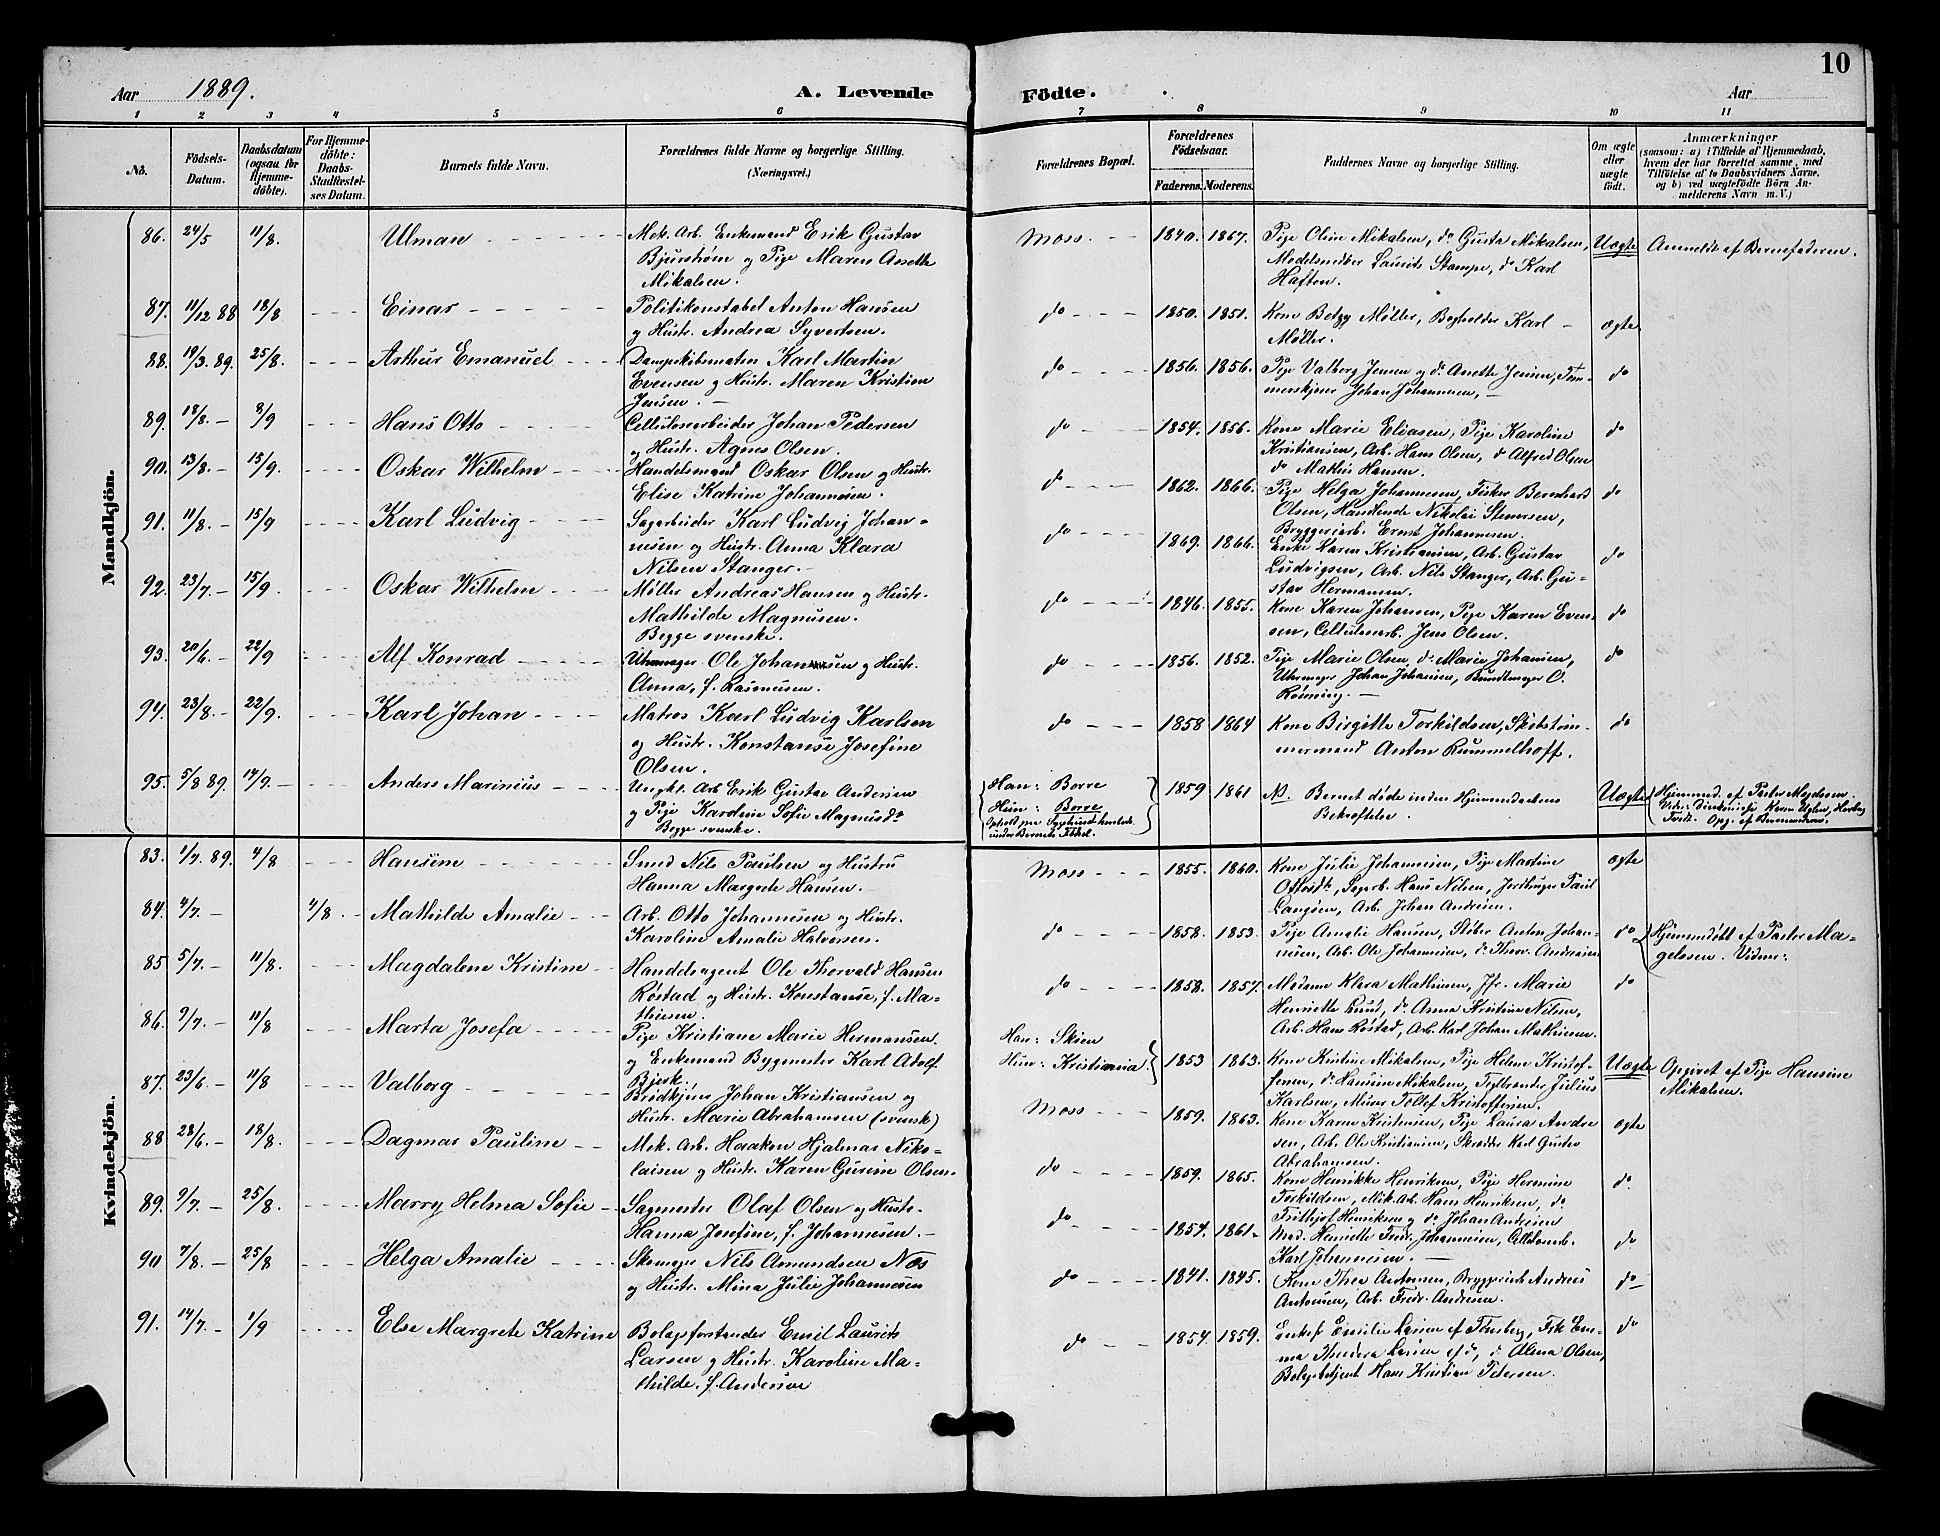 10
Aar 1889.
A. Levende
Födte.
Aar
1 2 3 4 5 6 7 8 9 10 11
No.
Födsels-
Datum.
Daabsdatum
(ogsaa for
Hjemme-
döbte).
For Hjemme-
döbte:
Daabs-
Stadfæstel-
ses Datum.
Barnets fulde Navn.
Forældrenes fulde Navne og borgerlige Stilling.
(Næringsvei.)
Forældrenes Bopæl.
Forældrenes
Födselsaar.
Faderens. Moderens.
Faddernes Navne og borgerlige Stilling.
Om ægte
eller
uægte
födt.
Anmærkninger
(saasom: a) i Tilfælde af Hjemmedaab,
hvem der har forrettet samme, med
Tilföielse af to Daabsvidners Navne,
og b) ved uægtefödte Börn An-
melderens Navn m.V.)
Mandkjön.
86. 24/5 11/8. Ulman Mek. Arb. Enkemand Erik Gustav
Bjurstrøm og Pige Maren Anette
Mikalsen.
Moss. 1840. 1867. Pige Oline Mikalsen, do Gusta Mikalsen,
Modelsnedker Laurits Stampe, do Karl
Haften.
Uægte Anmeldt af Barnefaderen.
87. 11/12 88 18/8 Einar Politikonstabel Anton Hansen
og Hustr. Andrea Syvertsen.
do 1850. 1851. Kone Betzy Møller, Bogholder Karl
Møller.
ægte
88. 19/3 89. 25/8. Arthur Emanuel Dampskibsmaten Karl Martin
Evensen og Hustr. Maren Kristine
Jensen.
do 1856. 1856. Pige Valborg Jensen og do Anette Jensen, Tøm-
merskjører Johan Johannesen,
do
89. 18/8. 8/9 Hans Otto Cellulosearbeider Johan Pedersen
og Hustr. Agnes Olsen.
do 1854. 1856. Kone Marie Eliasen, Pige Karoline
Kristiansen, Arb. Hans Olsen, do Alfred Olsen
do Mathis Hansen.
do
90. 13/8. 15/9. Oskar Wilhelm Handelsmand Oskar Olsen og Hustr.
Elise Katrine Johannesen.
do 1862. 1866. Pige Helga Johannesen, Fisker Bernhard
Olsen, Handlende Nikolai Stenersen,
Bryggeriarb. Ernst Johannesen.
do
91. 11/8. 15/9 Karl Ludvig Sagarbeider Karl Ludvig Johan-
nesen og Hustr. Anna Klara
Nilsen Stanger.
do 1869. 1866. Enke Karen Kristiansen, Arb. Gustav
Ludvigsen, Arb. Nils Stanger, Arb. Gu-
stav Hermansen.
do
92. 23/7. 15/9 Oskar Wilhelm Møller Andreas Hansen og Hustr.
Mathilde Magnusen.
Begge svenske.
do 1846. 1855. Kone Karen Johansen, Pige Karen Even-
sen, Cellulosearb. Jens Olsen.
do
93. 20/6. 22/9 Alf Konrad Uhrmager Ole Johansen og Hustr.
Anna, f. Rasmusen.
do 1856. 1852. Pige Marie Olsen, do Marie Johansen,
Uhrmager Johan Johansen, Bundtmager O.
Rønning.
do
94. 23/8. 22/9. Karl Johan Matros Karl Ludvig Karlsen
og Hustr. Konstanse Josefine
Olsen.
do 1858 1864 Kone Birgitte Torkildsen, Skibstøm-
mermand Anton Rummelhoff.
do
95. 5/8 89. 14/9. Anders Marinius Ungk. Arb Erik Gustav Andersen
og Pige Karoline Sofie Magnusdr
Begge svenske.
Han: Borre
Hun: Borre
under Barnets Fødsel.
1859 1861 NB. Barnet døde inden Hjemmedaabens
Bekræftelse.
Uægte Hjemmed. af Pastor Magelssen.
Kvindekjön.
83. 1/7. 89. 4/8 Hansine Smed Nils Paulsen og Hustru
Hanna Margrete Hansen.
Moss 1855. 1860. Kone Julie Johannesen, Pige Martine
Ottosdr, Sagarb. Hans Nilsen, Jordbruger Paul
Langsen, Arb. Johan Andresen.
ægte
84. 4/7. 4/8. Mathilde Amalie Arb. Otto Johannesen og Hustr.
Karoline Amalie Halvorsen.
do 1858. 1853. Pige Amalie Hansen, Støber Anton Johan-
nesen, Arb. Ole Johannesen, do Thorv. Andresen
do Hjemmedøbt af Pastor Ma-
gelssen. Vidne:
85 5/7. 11/8. Magdalene Kristine Handelsagent Ole Thorvald Hansen
Røstad og Hustr. Konstanse, f. Ma-
thisen.
do 1858. 1857. Madam Klara Mathisen, Jfr. Marie
Henriette Lund, do Anna Kristine Nilsen,
Arb. Hans Røstad, Arb. Karl Johan Mathisen.
do
86. 9/7. 11/8 Marta Josefa Pige Kristiane Marie Hermansen
og Enkemand Bygmester Karl Adolf
Bjerk.
Han: Skien
Hun: Kristiania
1853 1863. Kone Kristine Mikalsen, Pige Helene Kristof-
fersen, do Hansine Mikalsen, Teglbrænder Julius
Karlsen, Murer Tollef Kristoffersen.
Uægte Opgivet af Pige Hansine
Mikalsen.
87. 23/6. 11/8 Valborg Brødkjører Johan Kristiansen og
Hustr. Marie Abrahamsen (svensk)
Moss 1859. 1863. Kone Karen Kristensen, Pige Laura Andre
sen, Arb. Ole Kristiansen, Skrædder Karl Gustav
Abrahamsen.
ægte
88 28/6. 18/8. Dagmar Pauline Mek. Arb. Haakon Hjalmar Niko-
laisen og Hustr. Karen Gurine Olsen
do 1859. 1865. Kone Henrikke Henriksen, Pige Hermine
Torkildsen, Mek. Arb. Hans Henriksen, do
Frithjof Henriksen og do Johan Andresen
do.
89. 9/7. 25/8. Marry Helma Sofie Sagmester Olaf Olsen og Hustr.
Hanna Josefine, f. Johannesen.
do 1854. 1861. Mad. Henriette Fredr. Johannesen, Cellulosearb.
Karl Johannesen.
do
90 7/8. 25/8 Helga Amalie Skomager Nils Amundsen Næs
og Hustr. Mina Julie Johannesen
do 1841. 1845. Kone Thea Antonsen, Bryggerieb Andreas
Antonsen, Arb. Fredr. Andresen.
do
91. 14/7. 1/9 Else Margrete Katrine Bolagsforstander Emil Laurits
Larsen og Hustr. Karoline Ma-
thilde, f. Andersen
do 1854. 1859. Enkefr Emilie Larsen af Tønsberg, Frk Em-
ma Theodora Larsen af do, do Alma Olsen,
Bolagsbetjent Hans Kristian Petersen.
do